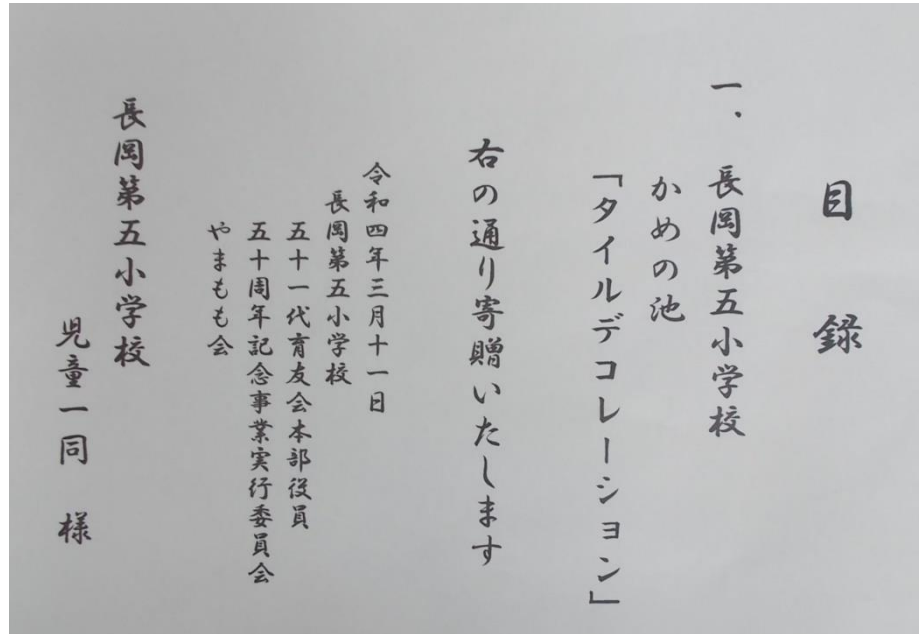 目録
一、長岡第五小学校
かめの池
「タイルデコレーション」
右の通り寄贈いたします
令和四年三月十一日
長岡第五小学校
五十一代育友会本部役員
五十周年記念事業実行委員会
やまもも会
長岡第五小学校
児童一同 様